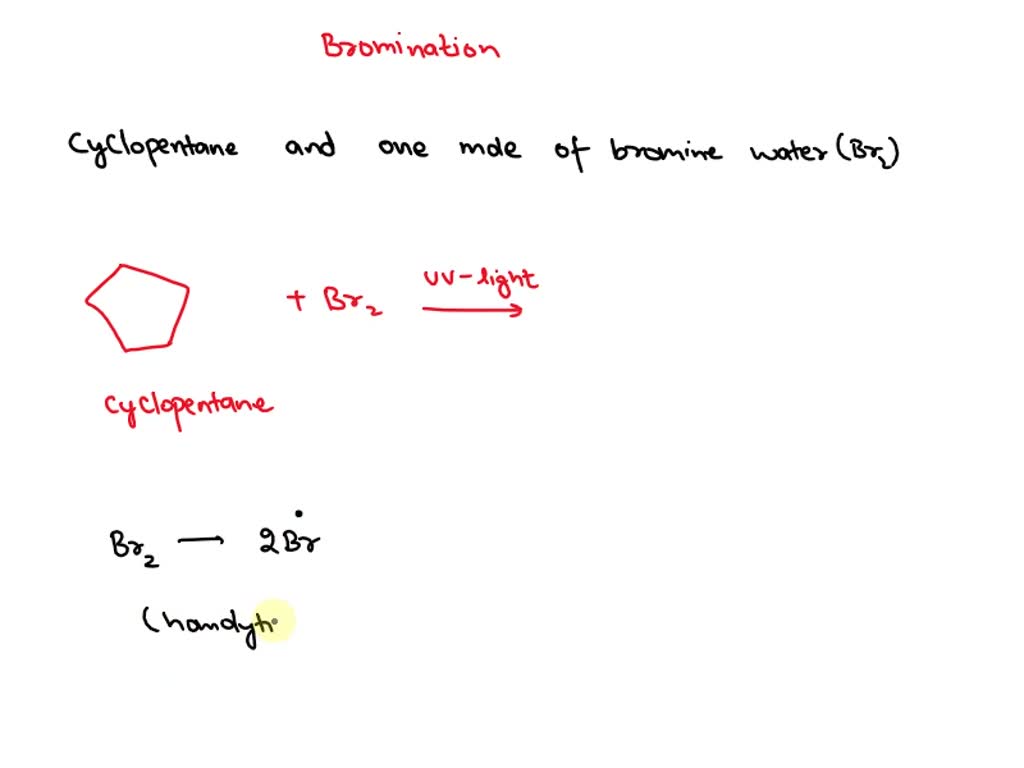 Bromination
Cyclopentane and one mole of bromine water (Br2)
+ Br2 UV-light
Cyclopentane
Br2 → 2Br•
(homolyti